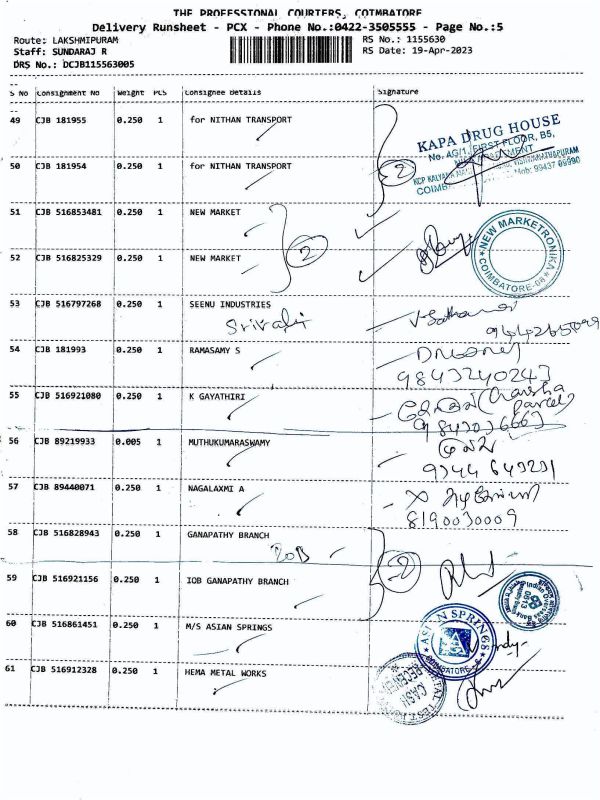 THE PROFESSIONAL COURIERS, COIMBATORE
Delivery Runsheet - PCX - Phone No.:0422-3505555 - Page No.:5
Route: LAKSHMIPURAM RS No.: 1155630
Staff: SUNDARAJ R RS Date: 19-Apr-2023
DRS No.: DCJB115563005
S No Consignment No Weight PCS Consignee Details Signature
49 CJB 181955 0.250 1 for NITHAN TRANSPORT
KAPA DRUG HOUSE
No. 4G/1, FIRST FLOOR, B5,
50 CJB 181954 0.250 1 for NITHAN TRANSPORT 2
Mob: 99437 09990
51 CJB 516853481 0.250 1 NEW MARKET
2
NEW MARKETRONIKA
COIMBATORE-08
52 CJB 516825329 0.250 1 NEW MARKET
53 CJB 516797268 0.250 1 SEENU INDUSTRIES
54 CJB 181993 0.250 1 RAMASAMY S
9843240243
55 CJB 516921080 0.250 1 K GAYATHIRI
56 CJB 89219933 0.005 1 MUTHUKUMARASWAMY
57 CJB 89440071 0.250 1 NAGALAXMI A
8190030009
58 CJB 516828943 0.250 1 GANAPATHY BRANCH
IOB
2
59 CJB 516921156 0.250 1 IOB GANAPATHY BRANCH
60 CJB 516861451 0.250 1 M/S ASIAN SPRINGS
ASIAN SPRINGS
COIMBATORE-6
61 CJB 516912328 0.250 1 HEMA METAL WORKS
CASH
RECEIVED